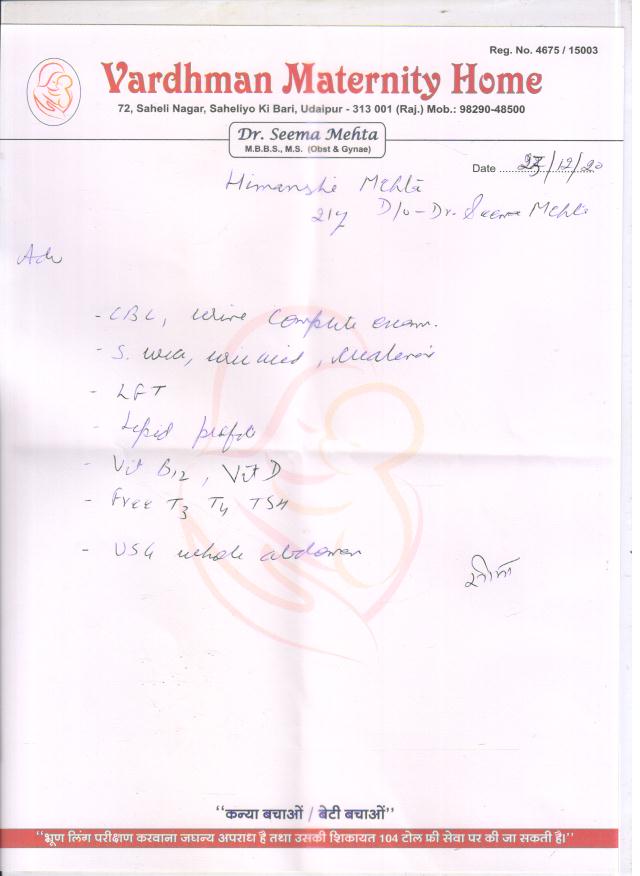 Reg. No. 4675 / 15003
Vardhman Maternity Home
72, Saheli Nagar, Saheliyo Ki Bari, Udaipur - 313 001 (Raj.) Mob.: 98290-48500
Dr. Seema Mehta
M.B.B.S., M.S. (Obst & Gynae)
Date /12/20
Himanshi Mehta
21y D/o - Dr. Seema Mehta
Adv
- CBC, Urine Complete exam.
- S. urea, uric acid, creatinine
- LFT
- Lipid profile
- Vit B12, Vit D
- Free T3 T4 TSH
- USG whole abdomen
सीमा
“कन्या बचाओं / बेटी बचाओं”
“भ्रूण लिंग परीक्षण करवाना जघन्य अपराध है तथा उसकी शिकायत 104 टोल फ्री सेवा पर की जा सकती है।”